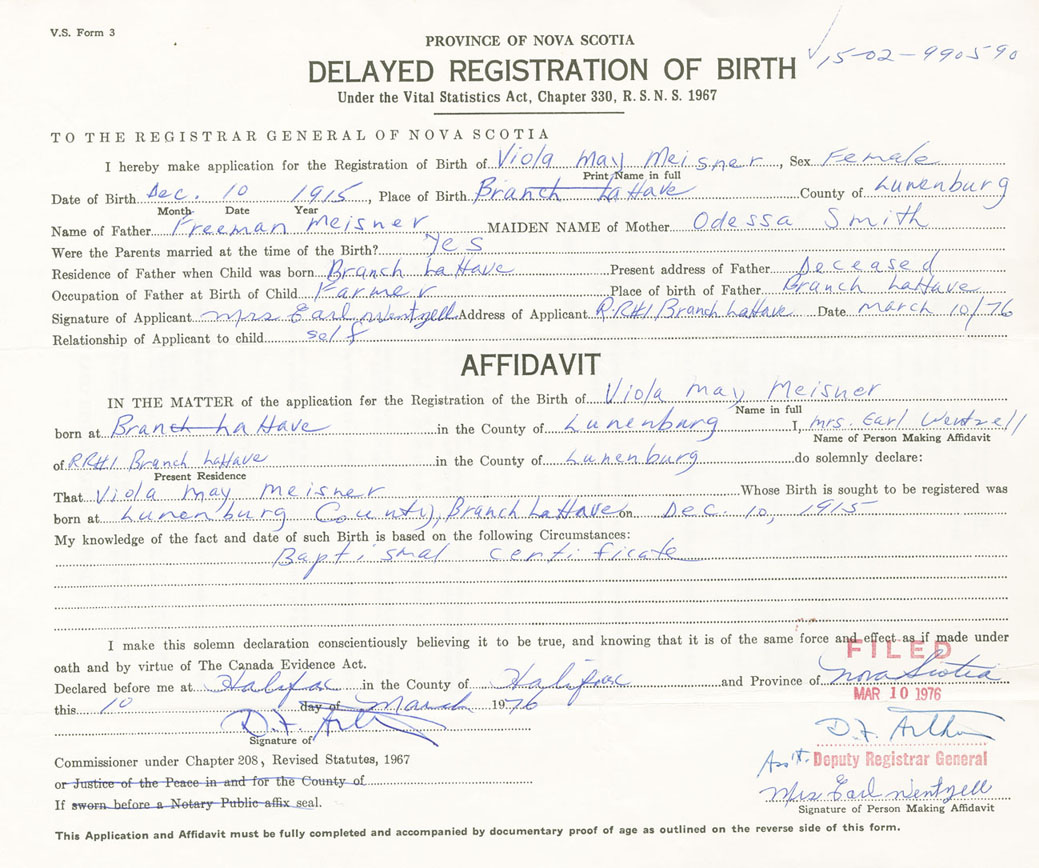 V.S. Form 3
PROVINCE OF NOVA SCOTIA
15-02-990590
DELAYED REGISTRATION OF BIRTH
Under the Vital Statistics Act, Chapter 330, R. S. N. S. 1967
TO THE REGISTRAR GENERAL OF NOVA SCOTIA
I hereby make application for the Registration of Birth of Viola May Meisner, Sex Female
Print Name in full
Date of Birth Dec. 10 1915, Place of Birth Branch LaHave County of Lunenburg
Month Date Year
Name of Father Freeman Meisner MAIDEN NAME of Mother Odessa Smith
Were the Parents married at the time of the Birth? Yes
Residence of Father when Child was born Branch LaHave Present address of Father Deceased
Occupation of Father at Birth of Child Farmer Place of birth of Father Branch LaHave
Signature of Applicant Mrs Earl Wentzell Address of Applicant R.R#1 Branch LaHave Date March 10/76
Relationship of Applicant to child self
AFFIDAVIT
IN THE MATTER of the application for the Registration of the Birth of Viola May Meisner
Name in full
born at Branch LaHave in the County of Lunenburg I, Mrs. Earl Wentzell
Name of Person Making Affidavit
of RR#1 Branch LaHave in the County of Lunenburg do solemnly declare:
Present Residence
That Viola May Meisner Whose Birth is sought to be registered was
born at Lunenburg County, Branch LaHave on Dec. 10, 1915
My knowledge of the fact and date of such Birth is based on the following Circumstances:
Baptismal Certificate
I make this solemn declaration conscientiously believing it to be true, and knowing that it is of the same force and effect as if made under
oath and by virtue of The Canada Evidence Act.
FILED
Declared before me at Halifax in the County of Halifax and Province of Nova Scotia
MAR 10 1976
this 10 day of March 1976
Signature of
Commissioner under Chapter 208, Revised Statutes, 1967
Ass't. Deputy Registrar General
or Justice of the Peace in and for the County of
If sworn before a Notary Public affix seal.
Mrs Earl Wentzell
Signature of Person Making Affidavit
This Application and Affidavit must be fully completed and accompanied by documentary proof of age as outlined on the reverse side of this form.